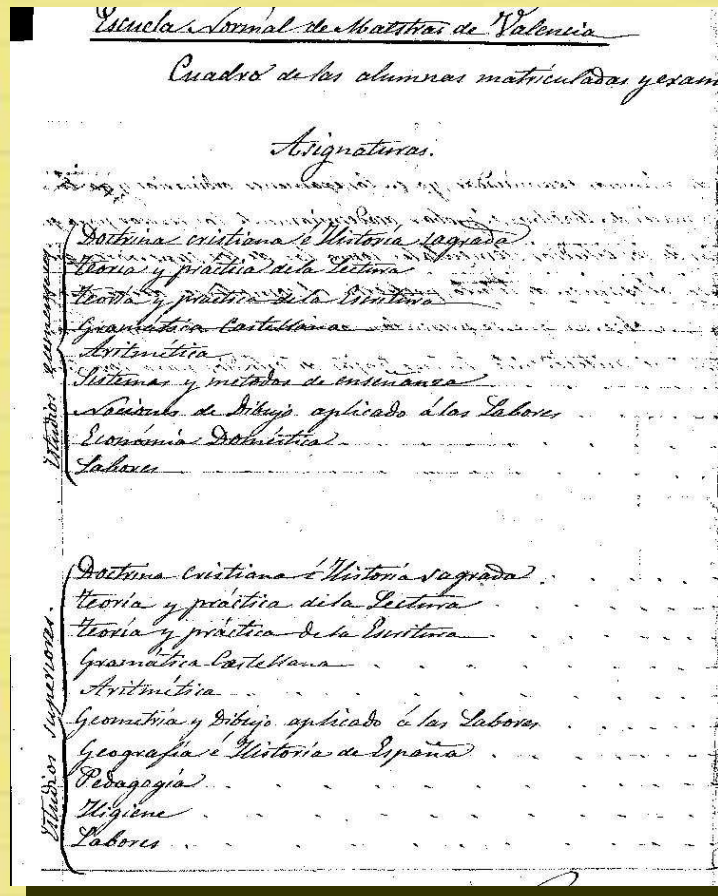 Escuela Normal de Maestras de Valencia
Cuadro de las alumnas matriculadas y exam
Asignaturas.
Estudios elementales.
Doctrina cristiana é Historia sagrada
Teoría y práctica de la Lectura
Teoría y práctica de la Escritura
Gramática Castellana
Aritmética
Sistemas y metodos de enseñanza
Nociones de Dibujo aplicado á las Labores
Económia Doméstica
Labores
Estudios superiores.
Doctrina cristiana é Historia sagrada
Teoría y práctica de la Lectura
Teoría y práctica de la Escritura
Gramática Castellana
Aritmética
Geometría y Dibujo aplicado á las Labores
Geografía é Historia de España
Pedagogía
Higiene
Labores